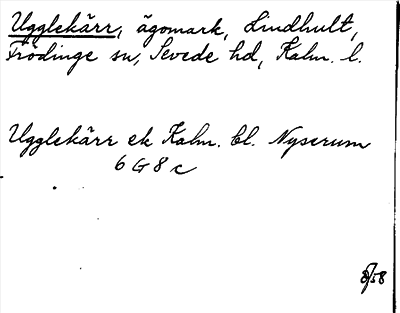 Ugglekärr, ägomark, Lindhult,
Frödinge sn, Sevede hd, Kalm. l.
Ugglekärr ek Kalm. bl. Nyserum
6 G 8 c